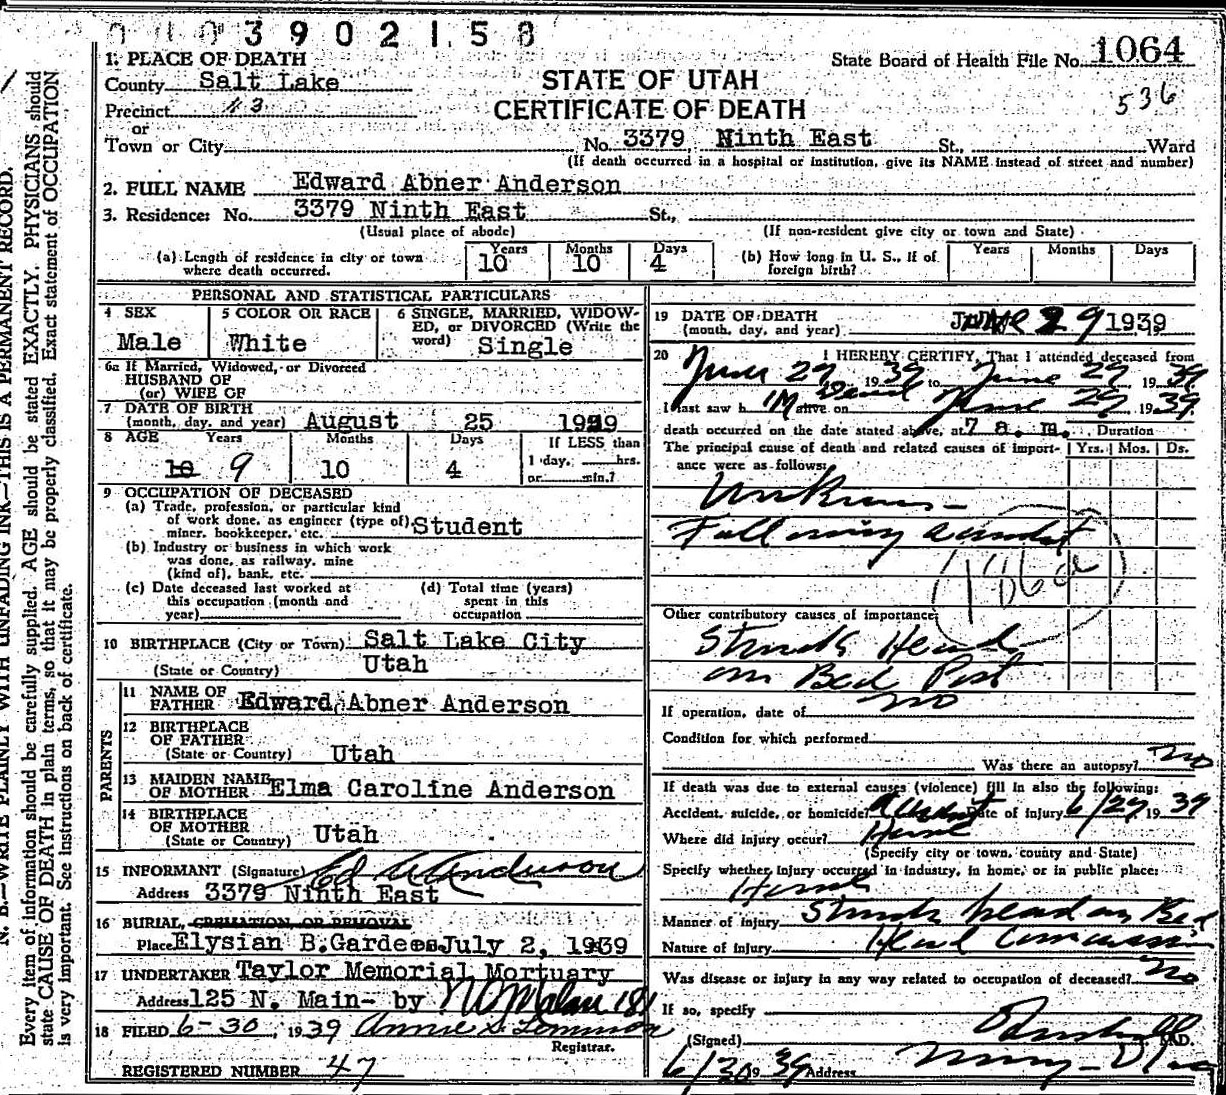 0 1 0 3 9 0 2 1 5 8
1. PLACE OF DEATH
County Salt Lake
Precinct 13
or
Town or City
State Board of Health File No. 1064
536
STATE OF UTAH
CERTIFICATE OF DEATH
No. 3379 Ninth East St., Ward
(If death occurred in a hospital or institution, give its NAME instead of street and number)
2. FULL NAME Edward Abner Anderson
3. Residence: No. 3379 Ninth East St.,
(Usual place of abode) (If non-resident give city or town and State)
(a) Length of residence in city or town where death occurred. Years 10 Months 10 Days 4
(b) How long in U. S., if of foreign birth? Years Months Days
PERSONAL AND STATISTICAL PARTICULARS
4 SEX Male
5 COLOR OR RACE White
6 SINGLE, MARRIED, WIDOWED, or DIVORCED (Write the word) Single
6a If Married, Widowed, or Divorced
HUSBAND OF
(or) WIFE OF
7 DATE OF BIRTH
(month, day, and year) August 25 1929
8 AGE Years Months Days If LESS than
10 9 10 4 1 day, hrs.
or min.?
9 OCCUPATION OF DECEASED
(a) Trade, profession, or particular kind
of work done, as engineer (type of), Student
miner, bookkeeper, etc.
(b) Industry or business in which work
was done, as railway, mine
(kind of), bank, etc.
(c) Date deceased last worked at
this occupation (month and
year)
(d) Total time (years)
spent in this
occupation
10 BIRTHPLACE (City or Town) Salt Lake City
(State or Country) Utah
PARENTS
11 NAME OF
FATHER Edward Abner Anderson
12 BIRTHPLACE
OF FATHER
(State or Country) Utah
13 MAIDEN NAME
OF MOTHER Elma Caroline Anderson
14 BIRTHPLACE
OF MOTHER
(State or Country) Utah
15 INFORMANT (Signature) Ed A Anderson
Address 3379 Ninth East
16 BURIAL, CREMATION OR REMOVAL
Place Elysian B. Gardens July 2, 1939
17 UNDERTAKER Taylor Memorial Mortuary
Address 125 N. Main- by 181
18 FILED 6-30, 1939 Annie S. Lemmon
Registrar.
REGISTERED NUMBER 47
19 DATE OF DEATH
(month, day, and year) June 29 1939
20 I HEREBY CERTIFY, That I attended deceased from
June 29 1939 to June 29 1939
I last saw him alive on Dead June 29 1939
death occurred on the date stated above, at 7 a. m. Duration
The principal cause of death and related causes of import- Yrs. Mos. Ds.
ance were as follows:
Unknown -
Following accident
186a
Other contributory causes of importance:
Struck Head
on Bed Post
no
If operation, date of
Condition for which performed
Was there an autopsy? no
If death was due to external causes (violence) fill in also the following:
Accident, suicide, or homicide? Accident Date of injury 6/29 1939
Where did injury occur? Home
(Specify city or town, county and State)
Specify whether injury occurred in industry, in home, or in public place:
Home
Manner of injury Struck head on Bed
Nature of injury Head Concussion
Was disease or injury in any way related to occupation of deceased? no
If so, specify
(Signed) M.D.
6/30 1939 Address
N. B.—WRITE PLAINLY WITH UNFADING INK—THIS IS A PERMANENT RECORD.
Every item of information should be carefully supplied. AGE should be stated EXACTLY. PHYSICIANS should
state CAUSE OF DEATH in plain terms, so that it may be properly classified. Exact statement of OCCUPATION
is very important. See instructions on back of certificate.